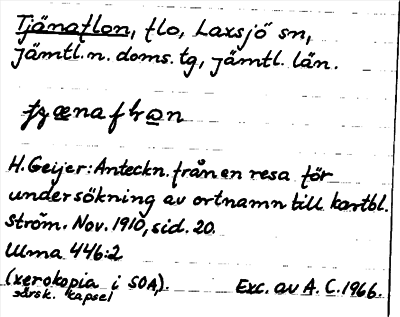 Tjänaflon, flo, Laxsjö sn,
Jämtl. n. doms. tg, Jämtl. län.
H. Geijer: Anteckn. från en resa för
undersökning av ortnamn till kartbl.
Ström. Nov. 1910, sid. 20.
Ulma 446:2
(xerokopia i SOA,). Exc. av A. C. 1966.
särsk. kapsel